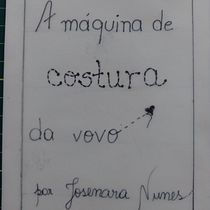 A máquina de
costura
da vovó
por Josenara Nunes